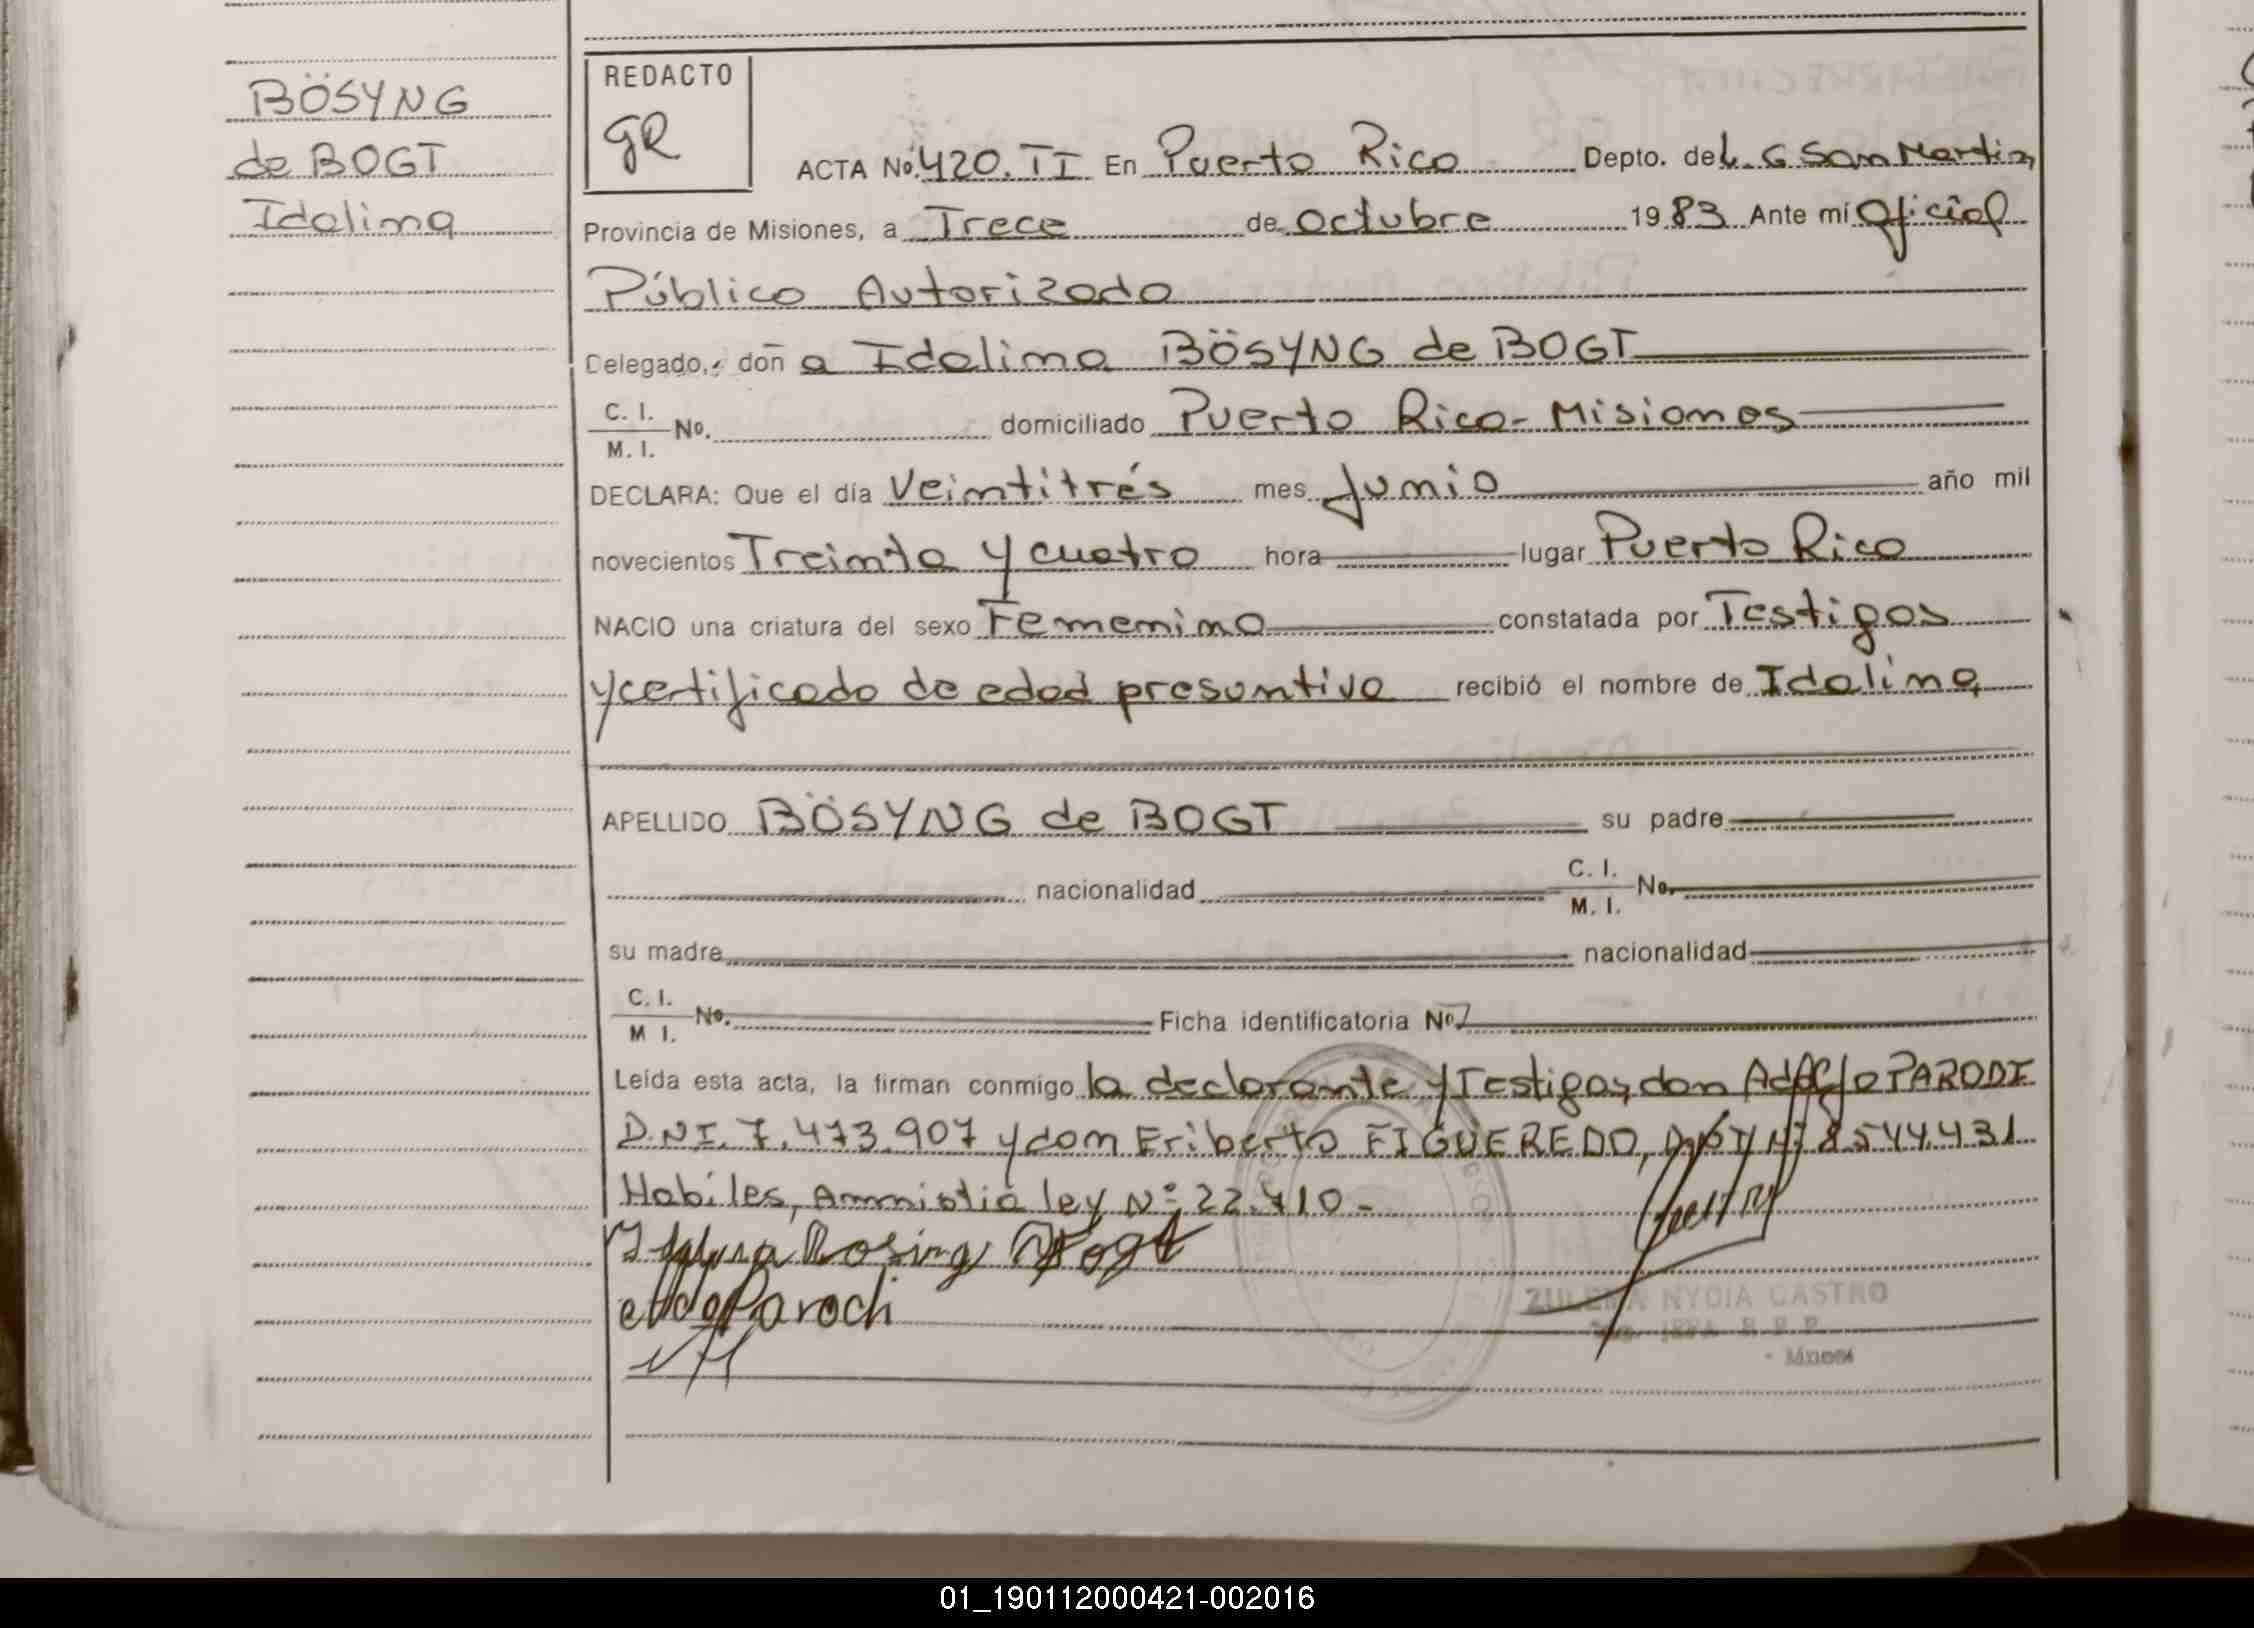 BÖSYNG
de BOGT
Idalina
REDACTO
gR
ACTA No. 420. TI En Puerto Rico Depto. de L. G San Martin,
Provincia de Misiones, a Trece de Octubre 1983 Ante mí Oficial
Público Autorizado
Delegado, don a Idalina BÖSYNG de BOGT
C. I.
M. I. No. domiciliado Puerto Rico - Misiones
DECLARA: Que el día Veintitrés mes Junio año mil
novecientos Treinta y cuatro hora lugar Puerto Rico
NACIO una criatura del sexo Femenino constatada por Testigos
y certificado de edad presuntiva recibió el nombre de Idalina
APELLIDO BÖSYNG de BOGT su padre
nacionalidad C. I.
M. I. No.
su madre nacionalidad
C. I.
M I. No. Ficha identificatoria No
Leída esta acta, la firman conmigo la declarante y Testigos, don Adolfo PARODI
D.N.I. 7.473.907 y don Eriberto FIGUEREDO, D.N.I Nº 8544.431
Habiles, Amnistia ley Nº 22.410 -
Rosing Vogt
Parodi
ZULEMA NYDIA CASTRO
01_190112000421-002016